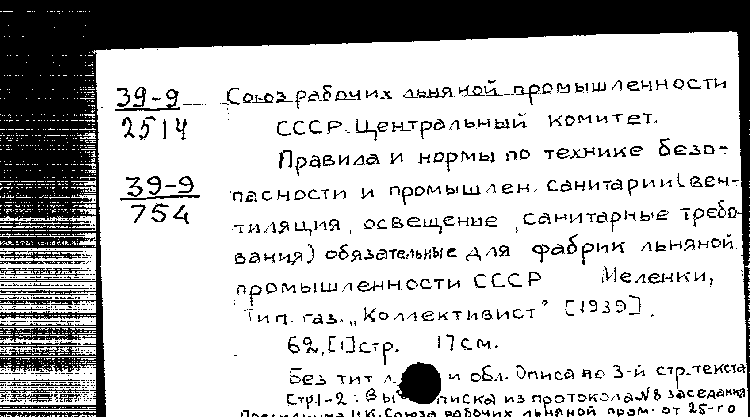 39-9
2514
39-9
754
Союз рабочих льняной промышленности
СССР. Центральный комитет.
Правила и нормы по технике безо-
пасности и промышлен. санитарии (вен-
тиляция, освещение, санитарные требо-
вания) обязательные для фабрик льняной
промышленности СССР Меленки,
Тип. газ. „Коллективист" [1939].
62,[1]стр. 17см.
Без тит и обл. Описано по 3-й стр. текста
Стр1-2: Вы писка из протокола №8 заседания
ЦК. Союза рабочих льняной пром. от 25-го